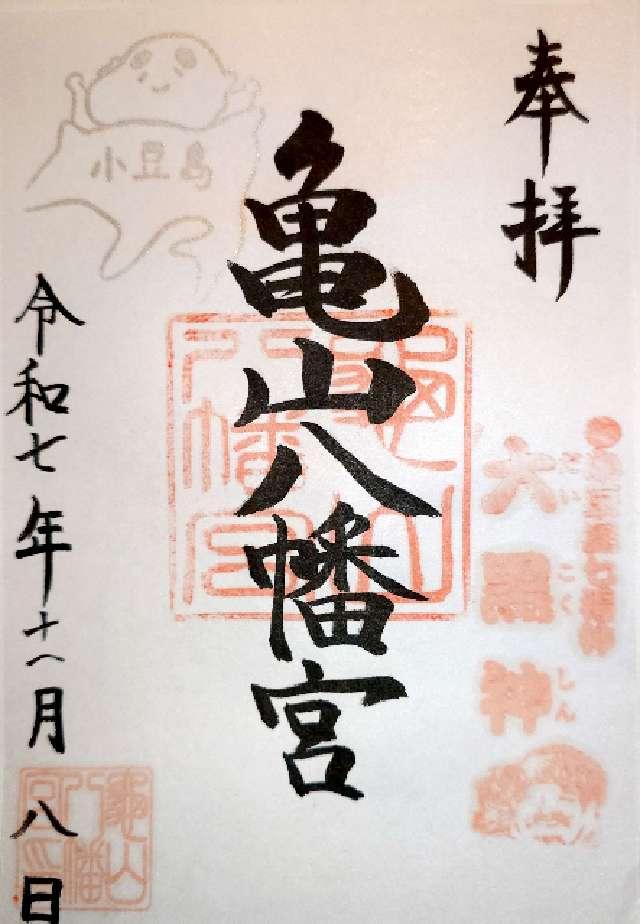 奉拝
大黒神
だいこくしん
亀山八幡宮
亀山八幡宮
小豆島
令和七年十一月八日
亀山八幡宮印